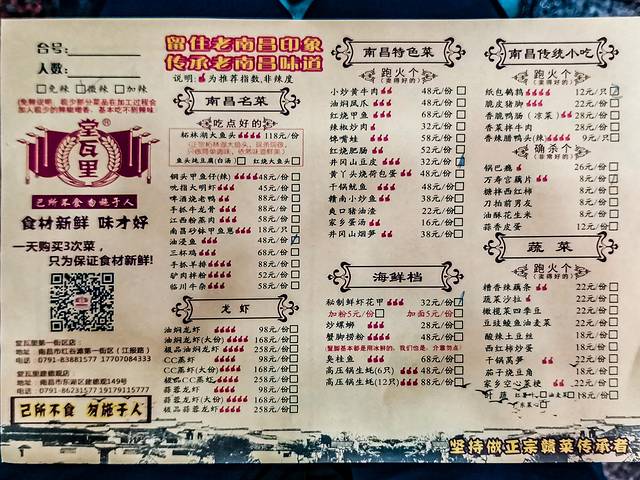 台号:
人数:
□免辣 □微辣 □加辣
堂瓦里
己所不食 勿施于人
食材新鲜 味才好
一天购买3次菜,
只为保证食材新鲜!
堂瓦里第一街区店:
地址 南昌市红谷滩第一街区(江报路)
电话 0791-83881577 17707084333
堂瓦里建德观店
地址: 南昌市东湖区建德观149号
电话 0791-86231577 19179115777
己所不食 勿施于人
留住老南昌印象
传承老南昌味道
说明:大推荐指数,非辣度
南昌名菜
吃点好的
柘林湖大鱼头 118元/份
鱼头炖豆腐(白汤) 红烧大鱼头
铜头甲鱼仔(辣) 48元/份
吮指大明虾 45元/份
啤酒烧老鸭 88元/份
手抓牛龙骨 88元/份
江西粉蒸肉 58元/份
南昌砂钵甲鱼崽 18元/只
油浸鱼 48元/份
三杯鸡 68元/份
手抓羊排 88元/份
驴肉拌粉 58元/份
临川牛杂 58元/份
龙虾
油焖龙虾 98元/份
油焖龙虾(大份) 168元/份
极品油焖龙虾 258元/份
CC蒸虾 98元/份
CC蒸虾(大份) 168元/份
极品CC蒸虾 258元/份
蒜蓉龙虾 98元/份
蒜蓉龙虾(大份) 168元/份
极品蒜蓉龙虾 258元/份
南昌特色菜
跑火个
(卖得好的)
小炒黄牛肉 48元/份
油焖凤爪 48元/份
红烧甲鱼 68元/份
辣椒炒肉 32元/份
馋嘴蛙 58元/份
红烧肥肠 52元/份
井冈山豆皮 32元/份
黄丫头烧荷包蛋 48元/份
干锅鱿鱼 48元/份
赣南小炒鱼 38元/份
爽口猪油渣 22元/份
家乡蛋汤 16元/份
井冈山烟笋 38元/份
海鲜档
秘制鲜虾花甲 32元/份
加粉5元/份 加面5元/份
炒螺蛳 28元/份
蟹脚捞粉 48元/份
臭桂鱼 68元/份
高压锅生蚝(6只) 48元/份
高压锅生蚝(12只) 88元/份
南昌传统小吃
跑火个
(卖得好的)
纸包鹌鹑 12元/只
脆皮猪脚 22元/份
香脆鸭肠(凉菜) 28元/份
香菜拌牛肉 28元/份
香辣腊鸭头(辣) 9元/只
确杀个
(非常好的)
锅巴 26元/份
万寿宫藕片 8元/份
糖拌西红柿 8元/份
刀拍前男友 8元/份
油酥花生米 8元/份
蒜香皮蛋 12元/份
蔬菜
跑火个
(卖得好的)
糟香辣藕条 22元/份
蔬菜沙拉 22元/份
橄榄菜四季豆 22元/份
豆豉鲮鱼油麦菜 22元/份
酸辣土豆丝 18元/份
西红柿炒蛋 18元/份
干锅莴笋 22元/份
茄子烧豆角 18元/份
家乡空心菜梗 22元/份
时蔬 18元/份
坚持做正宗赣菜传承者